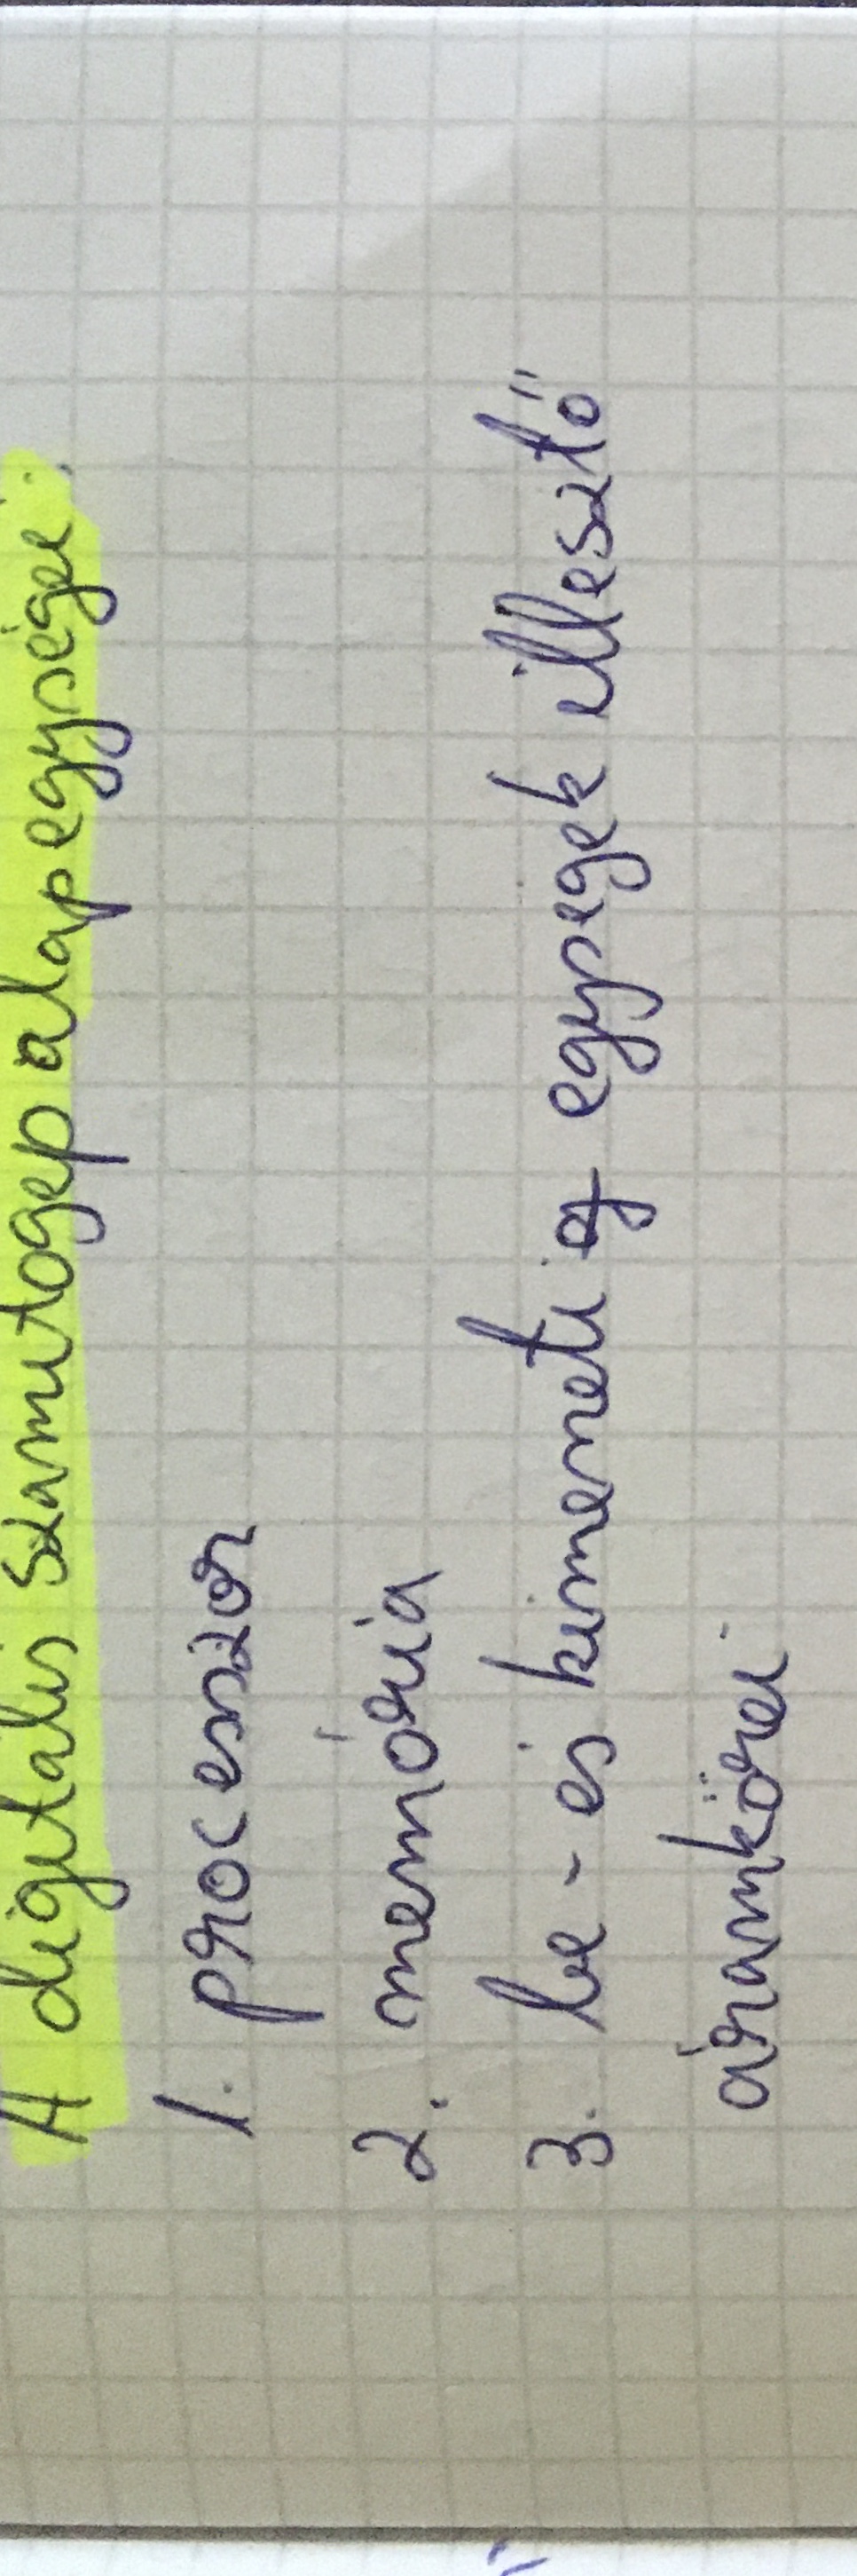 A digitális számitogép alapegységei:
1. processzor
2. memória
3. be - és kimeneti egységek illesztő
áramkörei